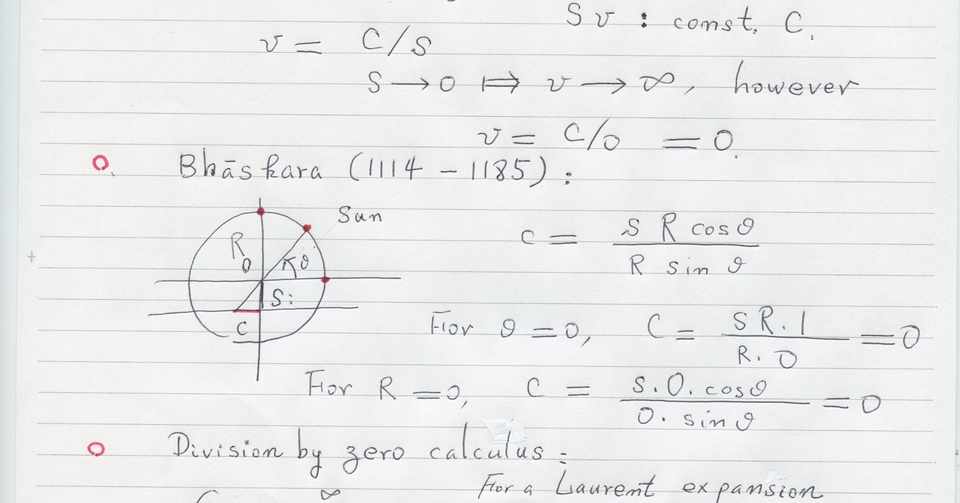 Sv : const. C.
v = C/S
S → 0 ⟹ v → ∞, however
v = C/0 = 0.
o. Bhāskara (1114 – 1185) :
Sun
R
0
θ
S :
C
C = S R cos θ / R sin θ
For θ = 0, C = S R. 1 / R. 0 = 0
For R = 0, C = S. 0. cos θ / 0. sin θ = 0
o Division by zero calculus :
For a Laurent expansion
∞